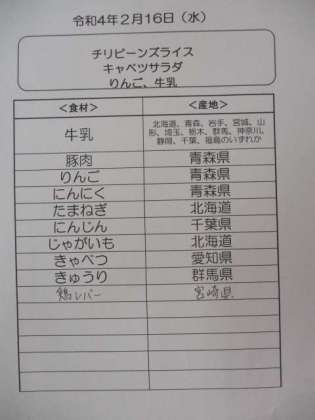 令和4年2月16日（水）
チリビーンズライス
キャベツサラダ
りんご、牛乳
＜食材＞ ＜産地＞
牛乳 北海道、青森、岩手、宮城、山
形、埼玉、栃木、群馬、神奈川、
静岡、千葉、福島のいずれか
豚肉 青森県
りんご 青森県
にんにく 青森県
たまねぎ 北海道
にんじん 千葉県
じゃがいも 北海道
きゃべつ 愛知県
きゅうり 群馬県
鶏レバー 宮崎県